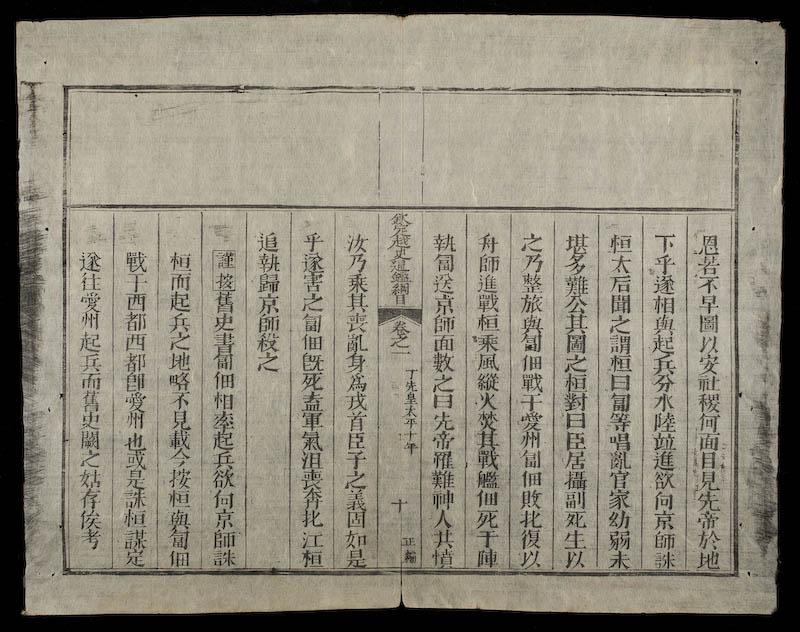 恩若不早圖以安社稷何面目見先帝於地
下乎遂相與起兵分水陸竝進欲向京師誅
桓太后聞之謂桓曰匐等唱亂官家幼弱未
堪多難公其圖之桓對曰臣居攝副死生以
之乃整旅與匐佃戰于愛州匐佃敗北復以
舟師進戰桓乘風縱火焚其戰艦佃死于陣
執匐送京師面數之曰先帝罹難神人共憤
欽定越史通鑑綱目 卷之一 丁先皇太平十年 十 正編
汝乃乘其喪亂身爲戎首臣子之義固如是
乎遂害之匐佃旣死盍軍氣沮喪奔北江桓
追執歸京師殺之
謹按舊史書匐佃相率起兵欲向京師誅
桓而起兵之地略不見載今按桓與匐佃
戰于西都西都卽愛州也或是誅桓謀定
遂往愛州起兵而舊史闕之姑存俟考